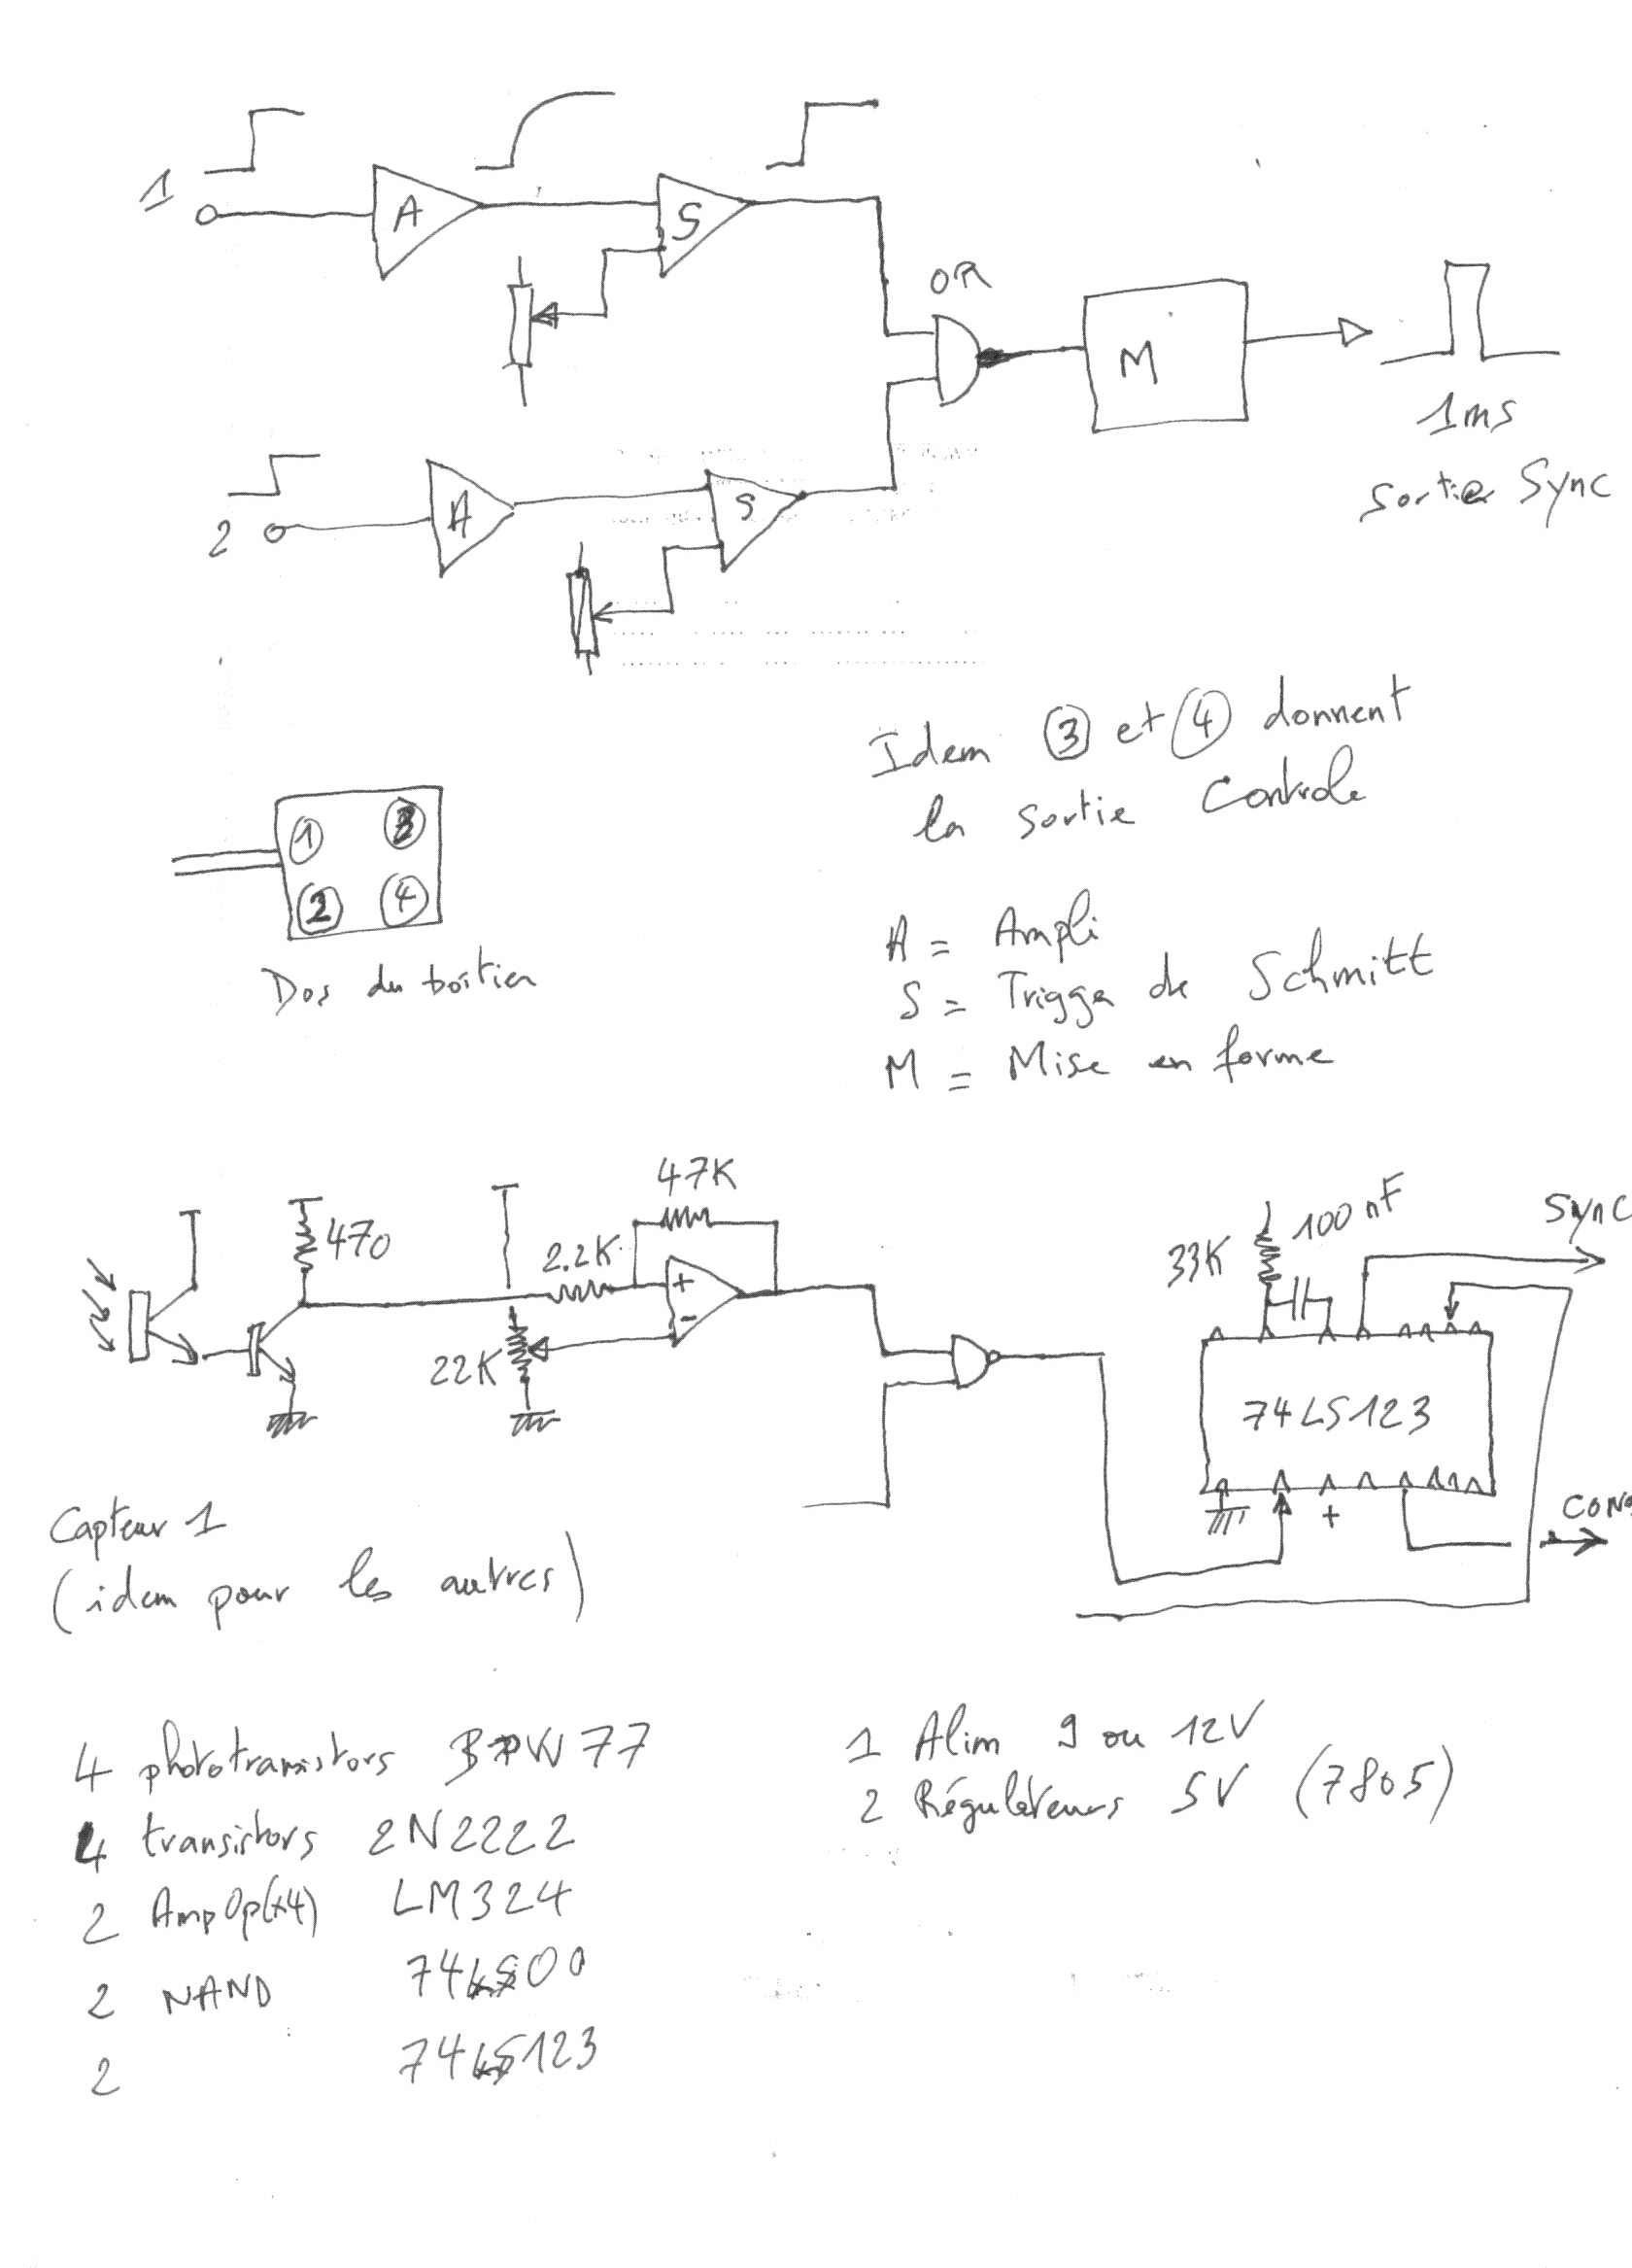 1
A
S
OR
M
1ms
Sortie Sync
2
A
S
Idem ③ et ④ donnent
la sortie Controle
① 3
2 ④
Dos du boîtier
A = Ampli
S = Trigger de Schmitt
M = Mise en forme
47K
470
2.2K
+
-
22K
33K
100 nF
SYNC
74LS123
+
Capteur 1
(idem pour les autres)
4 phototransistors BPW77
4 transistors 2N2222
2 AmpOp(x4) LM324
2 NAND 74LS00
2 74LS123
1 Alim 9 ou 12V
2 Régulateurs 5V (7805)